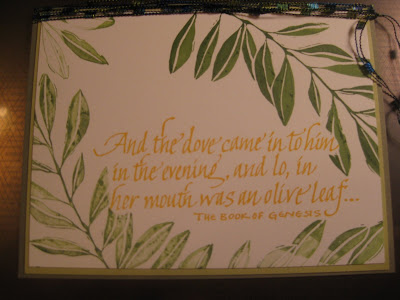 And the dove came in to him
in the evening, and lo, in
her mouth was an olive leaf...
THE BOOK OF GENESIS